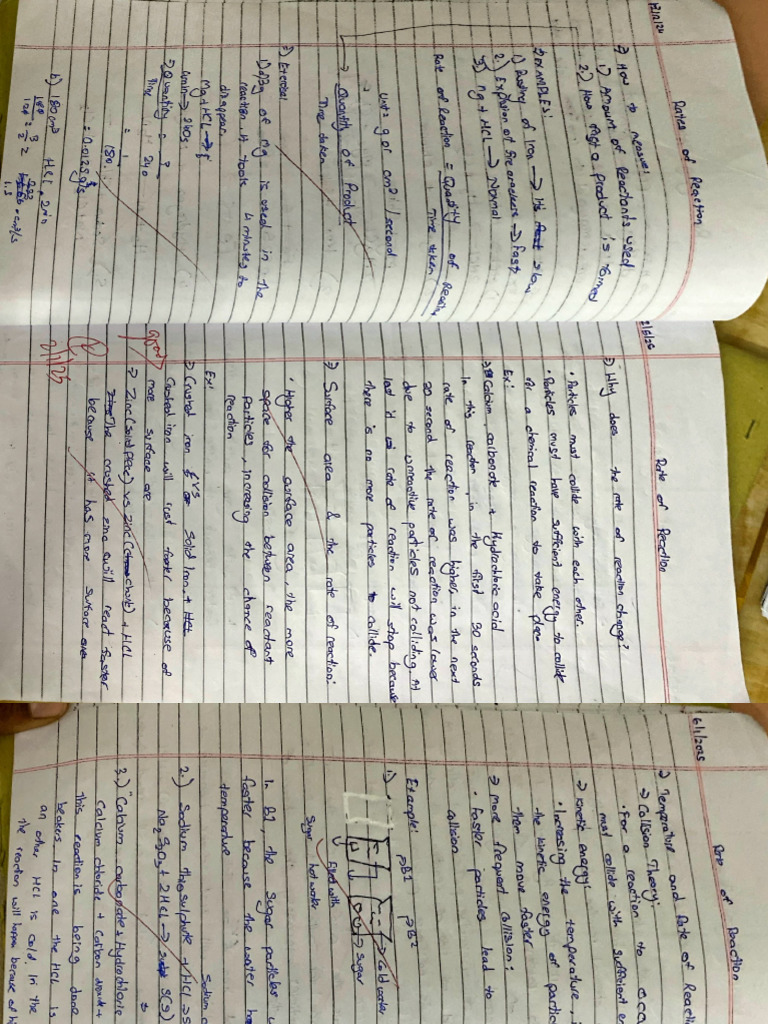 Rates of Reaction
→ How to measure:
1) Amount of Reactants used
2) How much product is formed
→ EXAMPLES:
1) Rusting of Iron → slow
2) Explosion of fire crackers → Fast
3) Mg + HCl → Normal
Rate of Reaction = Quantity of
Time taken
unit: g or cm³/second
→ Quantity of Product
Time taken
1) of Mg is used in the
reaction, it took 4 minutes to
disappear
Mg + HCl →
4min → 240s
→ Quantity = 3
Time 240
= 1
180.
= 0.0125 g/s
b) 180cm³ HCl
Rate of Reaction
→ Why does the rate of reaction change?
• Particles must collide with each other.
• Particles must have sufficient energy to collide
for a chemical reaction to take place
Ex:
→ Calcium carbonate + Hydrochloric acid
In this reaction, in the first 30 seconds
rate of reaction was higher, in the next
30 second the rate of reaction was lower
due to unreactive particles not colliding. At
last it rate of reaction will stop because
there is no more particles to collide.
→ Surface area & the rate of reaction:
• Higher the surface area, the more
space for collision between reactant
particles, increasing the chance of
reaction
Ex:
→ Crushed iron vs Solid Iron + HCl
Crushed iron will react faster because of
more surface are
→ Zinc (Solid piece) vs zinc + HCl
The crushed zinc will react faster
because it has more surface area
Good
2/1/25
6/1/2025
Rate of Reaction
→ Temperature and Rate of Reacti
→ Collision Theory:
• For a reaction to occu
must collide with sufficient en
→ Kinetic energy:
• Increasing the temperature,
the kinetic energy of partic
then move faster
→ More frequent collision:
• Faster particles lead to
collision
Example:
→B1 →B2
1)
→ Cold water
→ Sugar
Sugar hot water
In B1, the sugar particles
faster because the water ha
temperature
2.) Sodium thiosulphate + HCl →
Na₂S₂O₃ + 2HCl → S(s)
3.) Calcium carbonate + Hydrochloric
Calcium chloride + Carbon
This reaction is being done
beakers. In one the HCl is
an other HCl is cold. In the
the reaction will happen because of